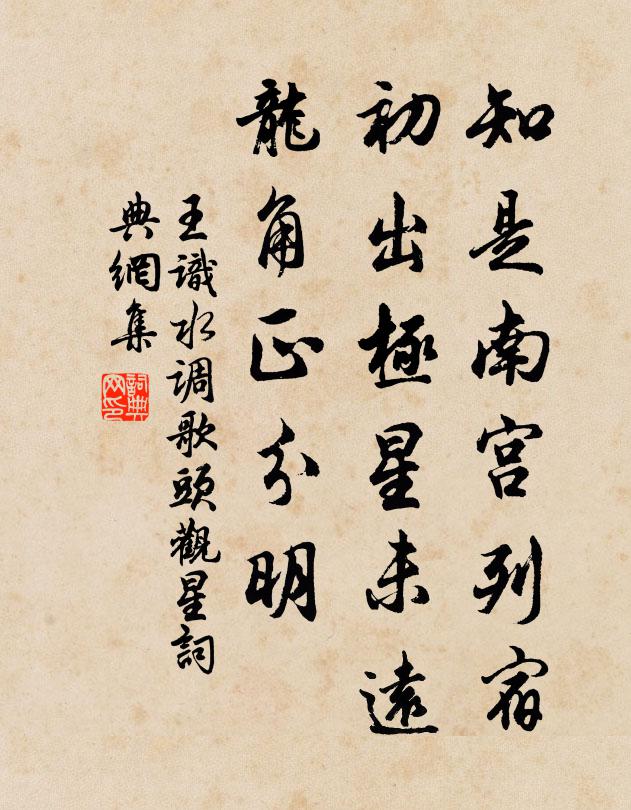 知是南宫列宿
初出極星未遠
龍角正分明
王識水调歌頭觀星詞
典網集
詞典网印